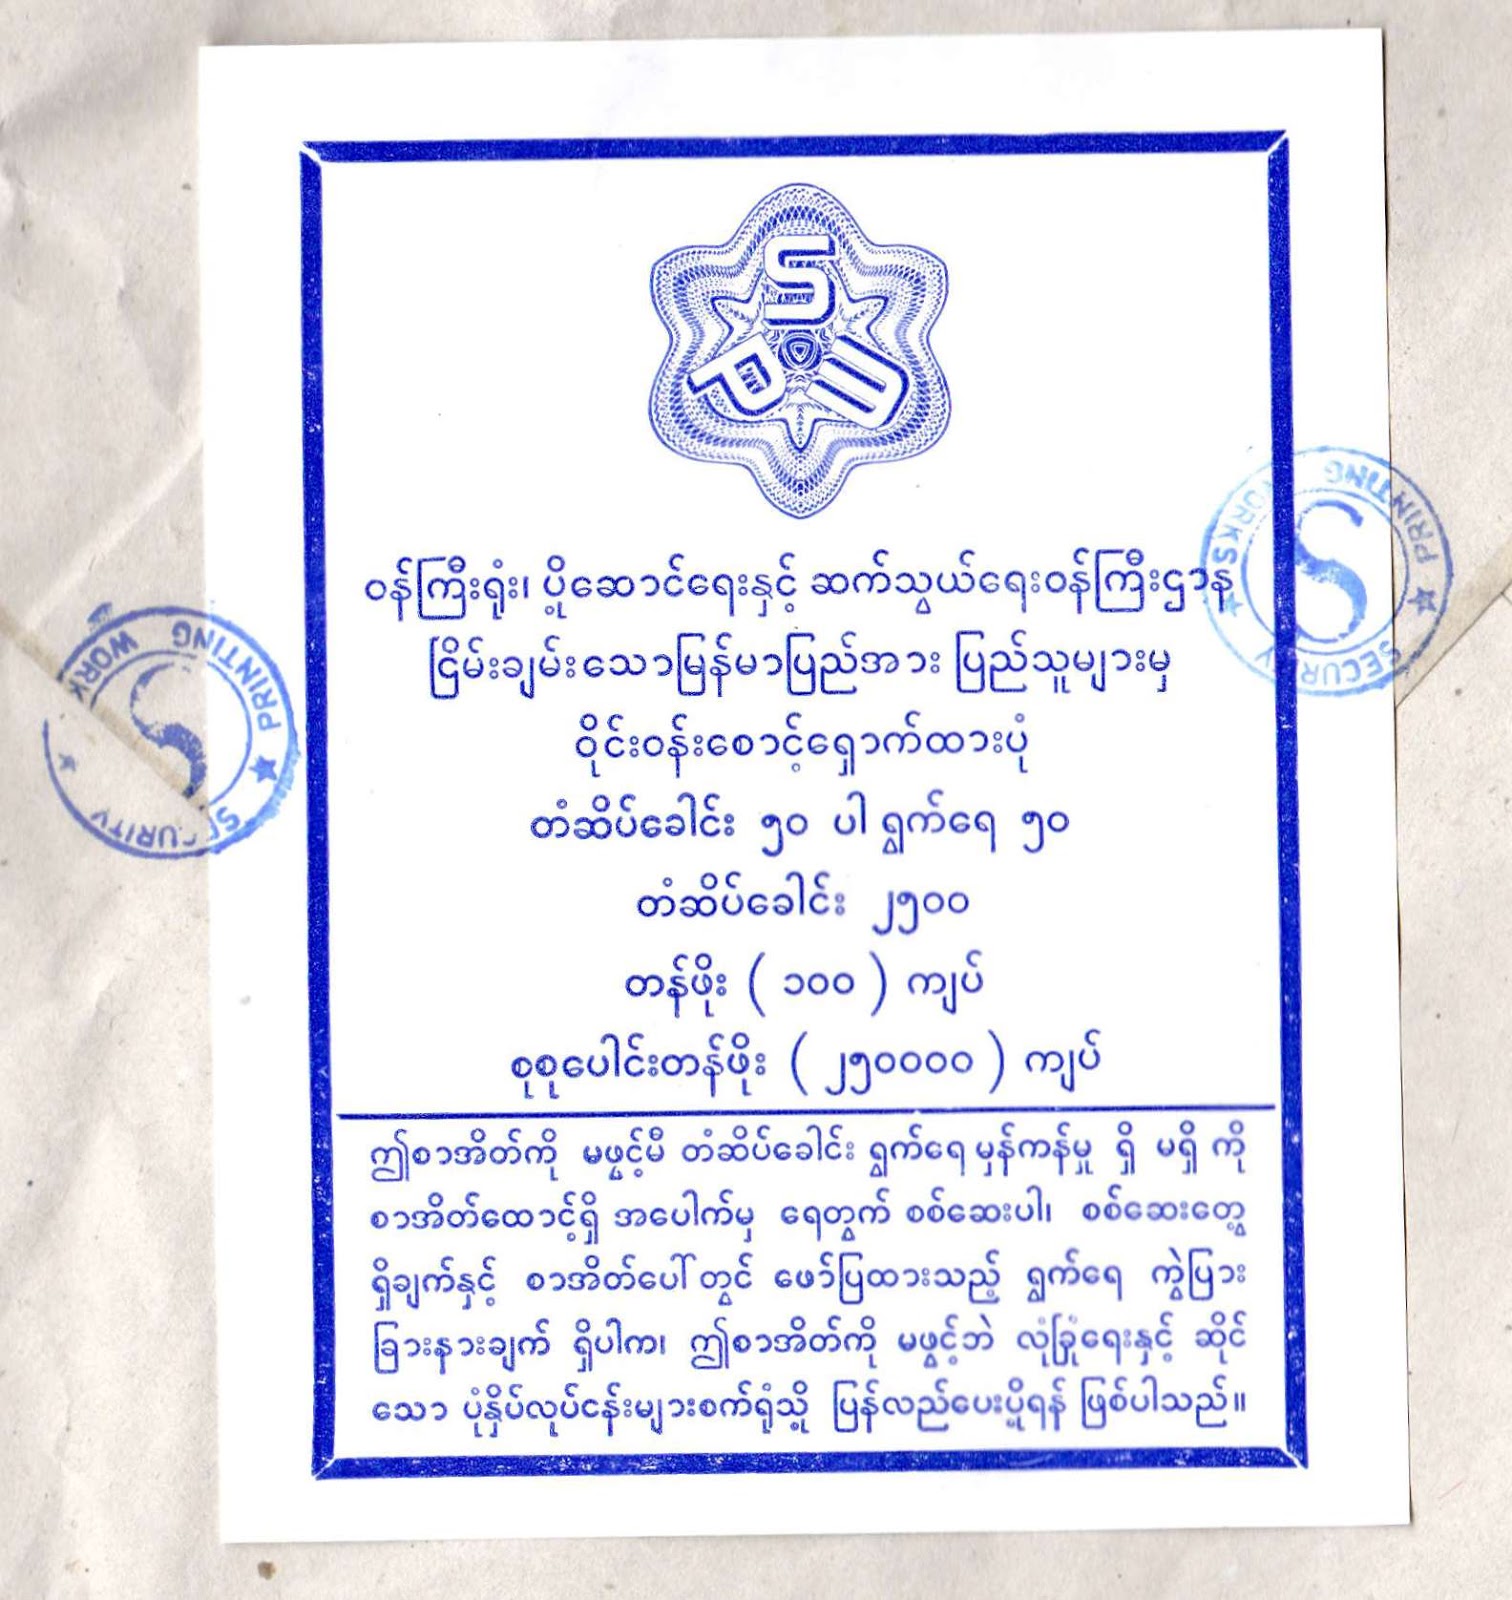 SPW
ဝန်ကြီးရုံး၊ ပို့ဆောင်ရေးနှင့် ဆက်သွယ်ရေးဝန်ကြီးဌာန
ငြိမ်းချမ်းသောမြန်မာပြည်အား ပြည်သူများမှ
ဝိုင်းဝန်းစောင့်ရှောက်ထားပုံ
တံဆိပ်ခေါင်း ၅၀ ပါ ရွက်ရေ ၅၀
တံဆိပ်ခေါင်း ၂၅၀၀
တန်ဖိုး ( ၁၀၀ ) ကျပ်
စုစုပေါင်းတန်ဖိုး ( ၂၅၀၀၀၀ ) ကျပ်
ဤစာအိတ်ကို မဖွင့်မီ တံဆိပ်ခေါင်း ရွက်ရေ မှန်ကန်မှု ရှိ မရှိ ကို
စာအိတ်ထောင့်ရှိ အပေါက်မှ ရေတွက် စစ်ဆေးပါ၊ စစ်ဆေးတွေ့
ရှိချက်နှင့် စာအိတ်ပေါ်တွင် ဖော်ပြထားသည့် ရွက်ရေ ကွဲပြား
ခြားနားချက် ရှိပါက၊ ဤစာအိတ်ကို မဖွင့်ဘဲ လုံခြုံရေးနှင့် ဆိုင်
သော ပုံနှိပ်လုပ်ငန်းများစက်ရုံသို့ ပြန်လည်ပေးပို့ရန် ဖြစ်ပါသည်။
SECURITY PRINTING WORKS
SECURITY PRINTING WORKS